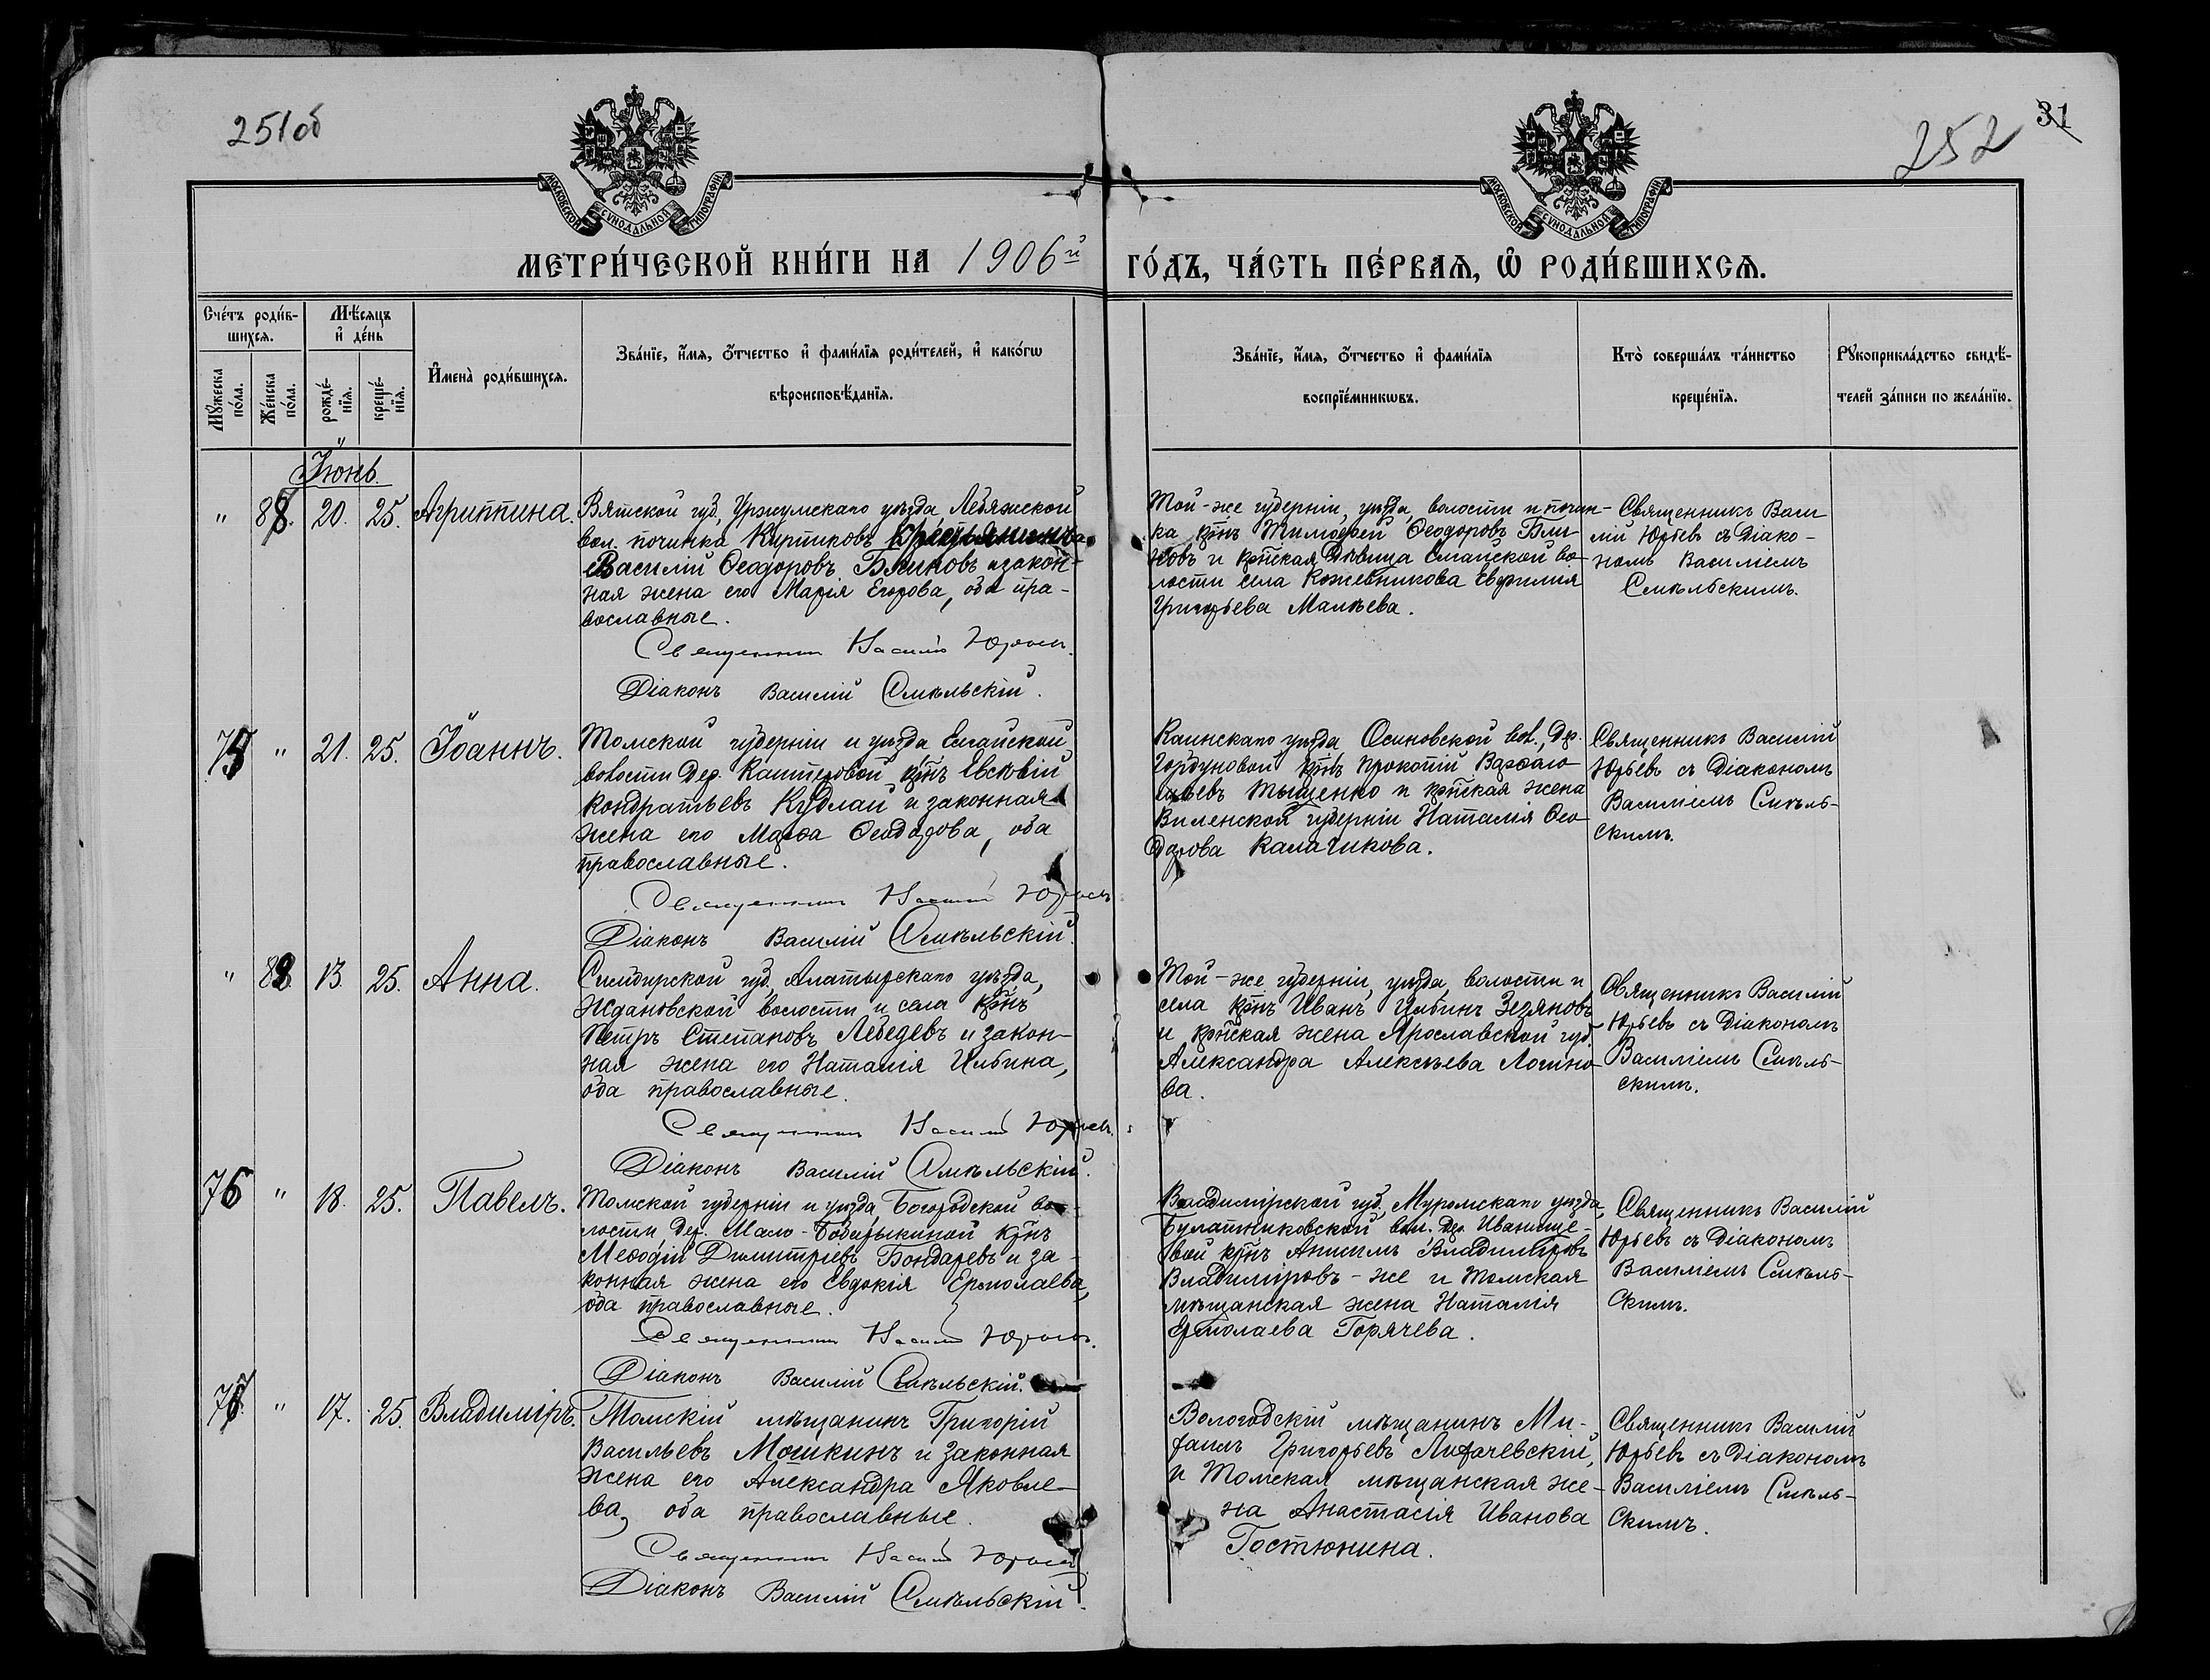 251об
252
31
МОСКОВСКОЙ СѴНОДАЛЬНОЙ ТИПОГРАФІИ
МОСКОВСКОЙ СѴНОДАЛЬНОЙ ТИПОГРАФІИ
МЕТРИ́ЧЕСКОЙ КНИ́ГИ НА 1906й
ГО́ДЪ, ЧА́СТЬ ПЕ́РВАѦ, Ѽ РОДИ́ВШИХСѦ.
Счéтъ роди́в-
шихсѧ.
Мꙋ́жеска по́ла.
Же́нска по́ла.
Мѣ́сѧцъ
и҆ де́нь
рожде́-
нїѧ.
креще́-
нїѧ.
И҆менà роди́вшихсѧ.
Зва́нїе, и҆́мѧ, ѻ҆́тчество и҆ фами́лїѧ роди́телей, и҆ како́гѡ
вѣроисповѣ́данїѧ.
Зва́нїе, и҆́мѧ, ѻ҆́тчество и҆ фами́лїѧ
воспрїе́мникѡвъ.
Кто̀ соверша́лъ та́инство
креще́нїѧ.
Рꙋкоприкла́дство свидѣ́-
телей за́писи по жела́нїю.
Іюнь.
" 88. 20. 25. Агриппина.
Вятской губ, Уржумскаго уѣзда Лебяжской
вол. починка Куртиковъ крестьянинъ
Василій Ѳеодоровъ Блиновъ и закон-
ная жена его Марія Егорова, оба пра-
вославные.
Священникъ Василій Юрьевъ.
Діаконъ Василій Смѣльскій.
Той-же губерніи, уѣзда, волости и почин-
ка крнъ Тимоѳей Ѳеодоровъ Бли-
новъ и крпская дѣвица Елгайской во-
лости села Кожевникова Евфимія
Григорьева Малѣева.
Священникъ Васи
лій Юрьевъ съ Діако-
номъ Василіемъ
Смѣльскимъ.
75 " 21. 25. Іоаннъ.
Томской губерніи и уѣзда Елгайской
волости дер. Каштаровой крнъ Евсевій
Кондратьевъ Кудлай и законная
жена его Марѳа Ѳеодорова, оба
православные.
Священникъ Василій Юрьевъ
Діаконъ Василій Смѣльскій.
Каинскаго уѣзда Осиновской вол., дер.
Горбуновой крнъ Прокопій Варѳоло
мѣевъ Тыщенко и крпская жена
Виленской губерніи Наталія Ѳео
дорова Калачикова.
Священникъ Василій
Юрьевъ съ Діакономъ
Василіемъ Смѣль-
скимъ.
" 89. 13. 25. Анна.
Симбирской губ, Алатырскаго уѣзда,
Ждановской волости и села крнъ
Петръ Степановъ Лебедевъ и закон-
ная жена его Наталія Ильина,
оба православные.
Священникъ Василій Юрьевъ.
Діаконъ Василій Смѣльскій.
Той-же губерніи, уѣзда, волости и
села крнъ Иванъ Ильинъ Зезяновъ
и крпская жена Ярославской губ.
Александра Алексѣева Логино
ва.
Священникъ Василій
Юрьевъ съ Діакономъ
Василіемъ Смѣль-
скимъ.
76 " 18. 25. Павелъ.
Томской губерніи и уѣзда Богородской во-
лости дер. Мало-Бобарыкиной крнъ
Меѳодій Димитріевъ Бондаревъ и за-
конная жена его Евдокія Ермолаева,
оба православные.
Священникъ Василій Юрьевъ.
Діаконъ Василій Смѣльскій.
Владимірской губ. Муромскаго уѣзда,
Булатниковской вол. дер. Иванище-
вой крнъ Анисимъ Владиміровъ
Владиміровъ-же и Томская
мѣщанская жена Наталія
Ермолаева Горячева.
Священникъ Василій
Юрьевъ съ Діакономъ
Василіемъ Смѣль-
скимъ.
77. " 17. 25. Владиміръ.
Томскій мѣщанинъ Григорій
Васильевъ Мошкинъ и законная
жена его Александра Яковле-
ва, оба православные.
Священникъ Василій Юрьевъ
Діаконъ Василій Смѣльскій.
Вологодскій мѣщанинъ Ми-
хаилъ Григорьевъ Лихачевскій,
и Томская мѣщанская же-
на Анастасія Иванова
Гостюнина.
Священникъ Василій
Юрьевъ съ Діакономъ
Василіемъ Смѣль-
скимъ.